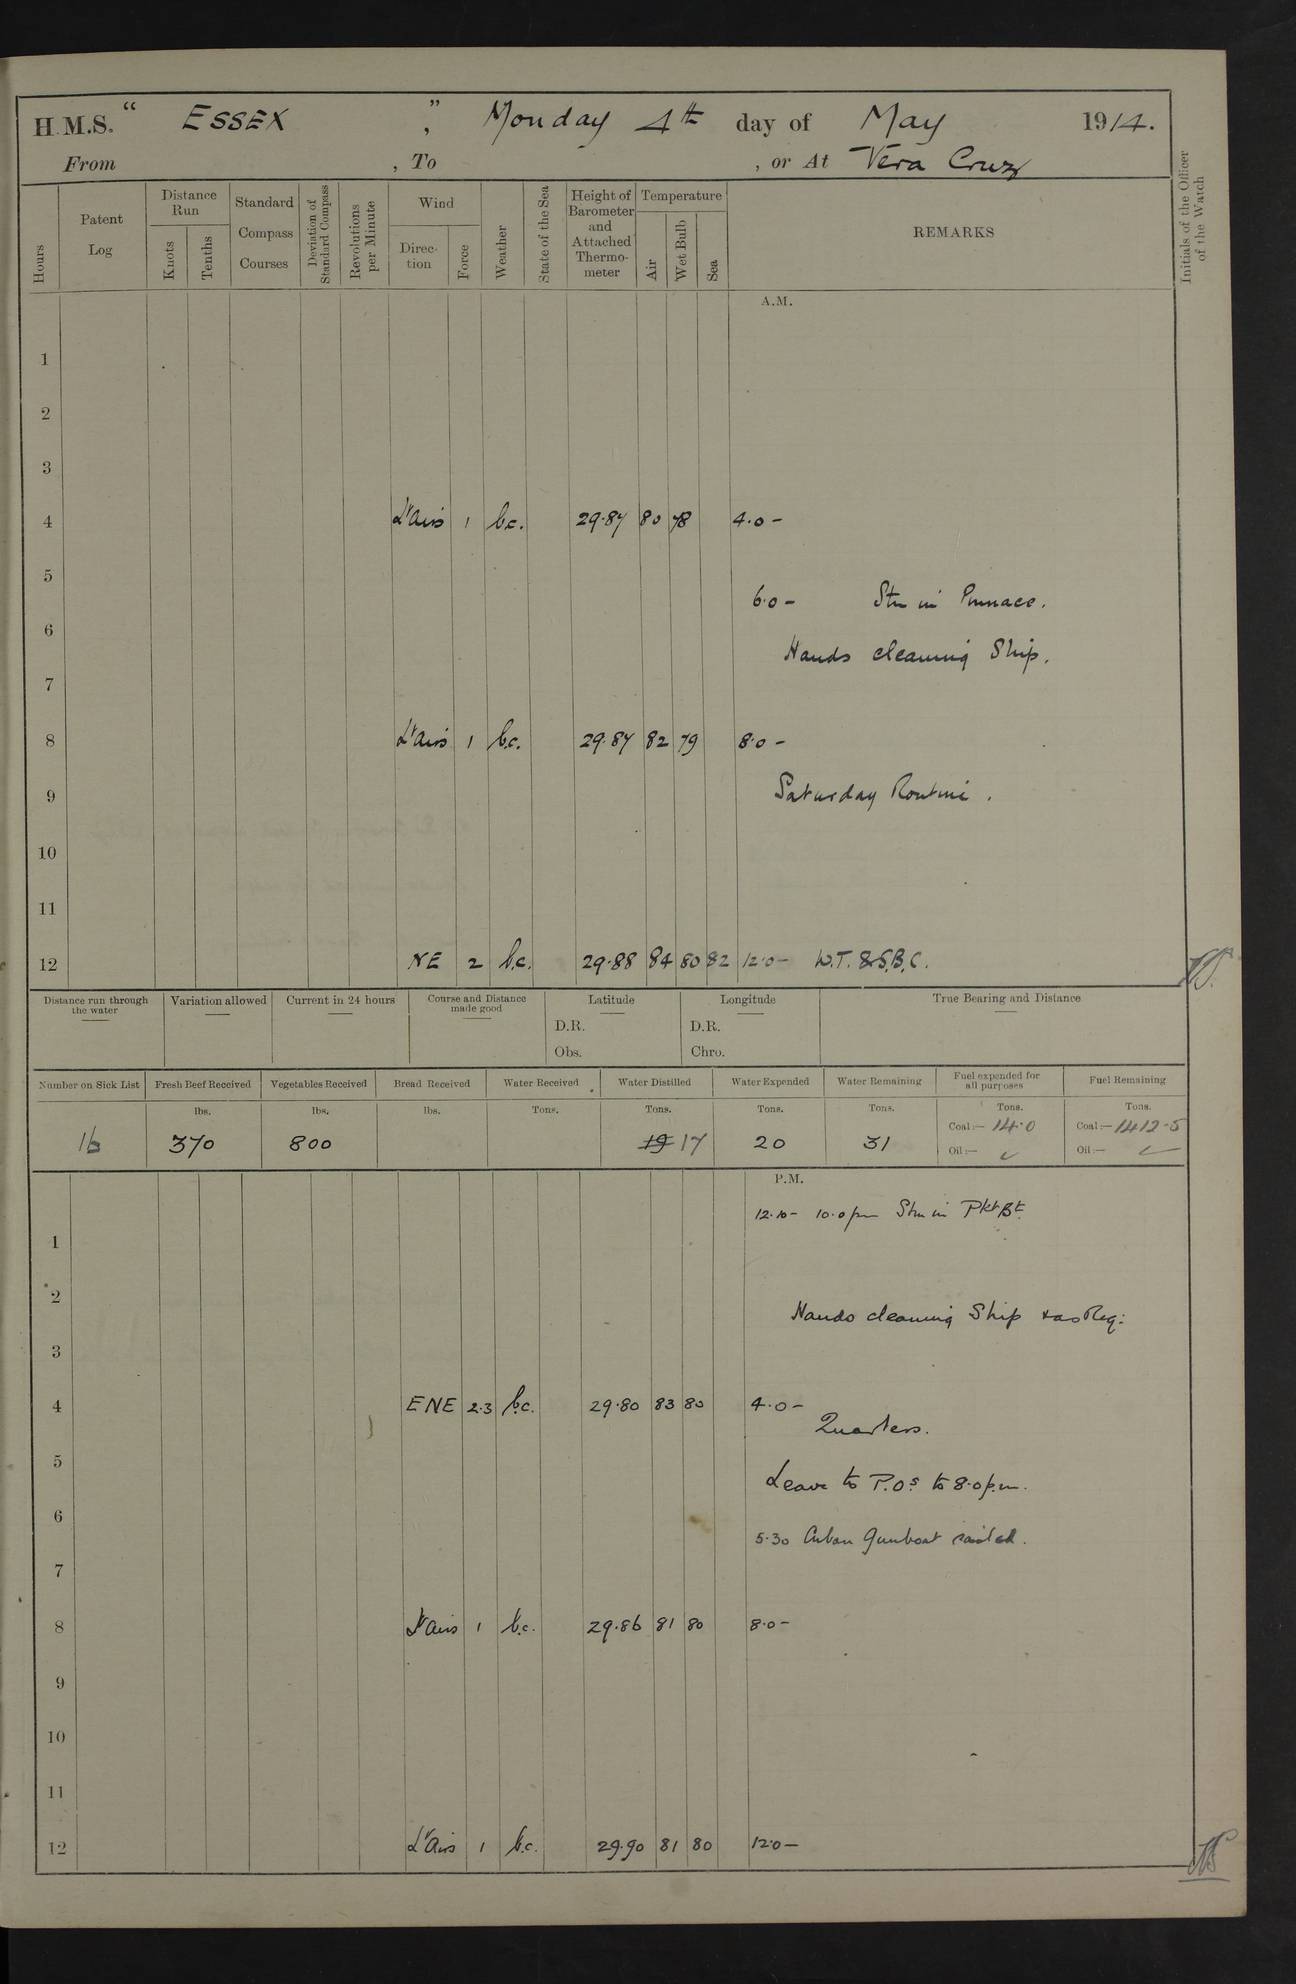 H.M.S. “ ESSEX ”, Monday 4th day of May 1914.
From , To , or At Vera Cruz
Hours
Patent Log
Distance Run
Knots
Tenths
Standard Compass Courses
Deviation of Standard Compass
Revolutions per Minute
Wind
Direction
Force
Weather
State of the Sea
Height of Barometer and Attached Thermometer
Temperature
Air
Wet Bulb
Sea
REMARKS
Initials of the Officer of the Watch
A.M.
1
2
3
4 Lt Airs 1 b.c. 29.87 80 78 4.0 -
5
6.0 - Stm in Pinnace.
6
Hands cleaning Ship.
7
8 Lt Airs 1 b.c. 29.87 82 79 8.0 -
9 Saturday Routine.
10
11
12 NE 2 b.c. 29.88 84 80 82 12.0 - W.T. & S.B.C.
Distance run through the water
Variation allowed
Current in 24 hours
Course and Distance made good
Latitude
D.R.
Obs.
Longitude
D.R.
Chro.
True Bearing and Distance
Number on Sick List
Fresh Beef Received
Vegetables Received
Bread Received
Water Received
Water Distilled
Water Expended
Water Remaining
Fuel expended for all purposes
Fuel Remaining
lbs. lbs. lbs. Tons. Tons. Tons. Tons. Tons. Tons.
16 370 800 19 17 20 31
Coal:— 14.0
Oil:—
Coal:— 1412.5
Oil:—
P.M.
12.10 - 10.0 pm Stm in Pkt Bt
1
2
Hands cleaning Ship & as Req:
3
4 ENE 2.3 b.c. 29.80 83 80 4.0 -
Quarters.
5
Leave to P.Os to 8.0 p.m.
6
5.30 Cuban Gunboat sailed.
7
8 Lt Airs 1 b.c. 29.86 81 80 8.0 -
9
10
11
12 Lt Airs 1 b.c. 29.90 81 80 12.0 -